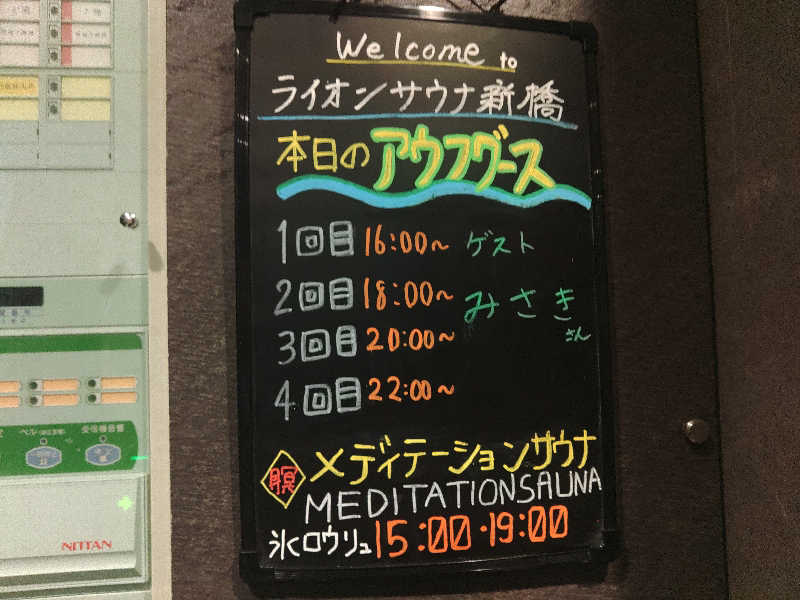 Welcome to
ライオンサウナ新橋
本日のアウフグース
1回目 16:00~ ゲスト
2回目 18:00~ みさき
3回目 20:00~ さん
4回目 22:00~
瞑 メディテーションサウナ
MEDITATIONSAUNA
氷ロウリュ 15:00・19:00
NITTAN